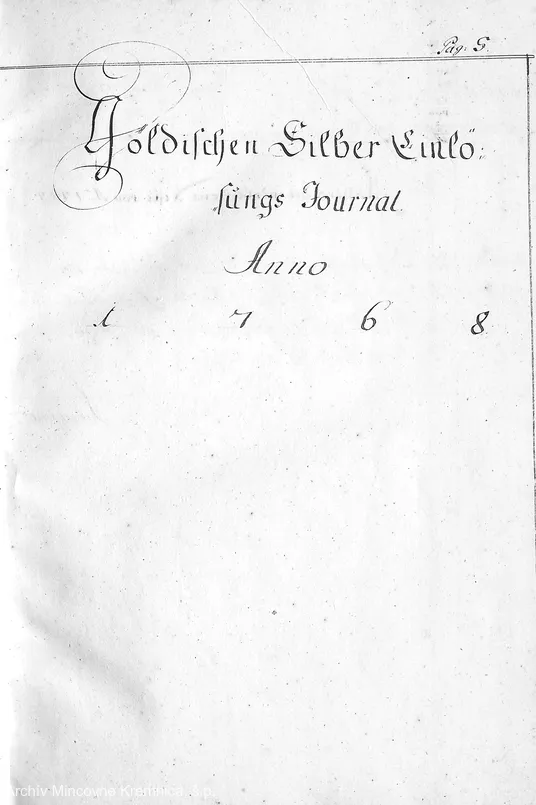 Pag: 5.
Göldischen Silber Einlö:
sungs Journal.
Anno
1 7 6 8
Archív Mincovne Kremnica, š.p.